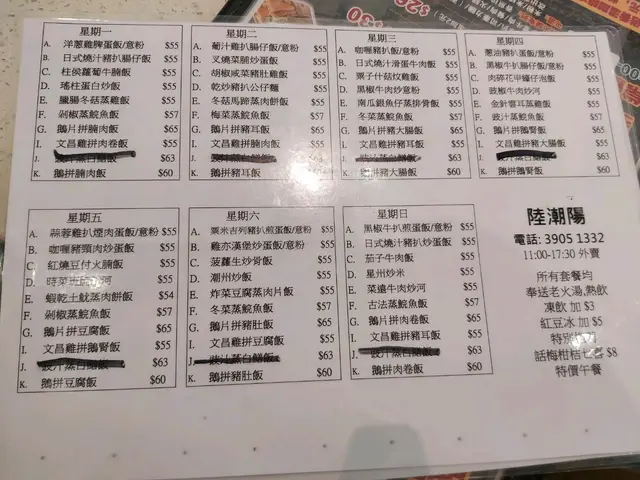 星期一
A. 洋蔥雞脾蛋飯/意粉 $55
B. 日式燒汁豬扒腸仔飯 $55
C. 柱侯蘿蔔牛腩飯 $55
D. 瑤柱蛋白炒飯 $55
E. 臘腸冬菇蒸雞飯 $55
F. 剁椒蒸鯇魚飯 $57
G. 鵝片拼腩肉飯 $65
I. 文昌雞拼肉卷飯 $55
J. 豉汁蒸白鱔飯 $63
K. 鵝拼腩肉飯 $60
星期二
A. 葡汁雞扒腸仔飯/意粉 $55
B. 叉燒菜脯炒蛋飯 $55
C. 胡椒咸菜豬肚雞飯 $55
D. 乾炒豬扒公仔麵 $55
E. 冬菇馬蹄蒸肉餅飯 $55
F. 梅菜蒸鯇魚飯 $57
G. 鵝片拼豬耳飯 $65
I. 文昌雞拼豬耳飯 $55
J. 豉汁蒸白鱔飯 $63
K. 鵝拼豬耳飯 $60
星期三
A. 咖喱豬扒蛋飯/意粉 $55
B. 日式燒汁滑蛋牛肉飯 $55
C. 栗子什菇炆雞飯 $55
D. 黑椒牛肉炒意粉 $55
E. 南瓜銀魚仔蒸排骨飯 $55
F. 冬菜蒸鯇魚飯 $57
G. 鵝片拼豬大腸飯 $65
I. 文昌雞拼豬大腸飯 $55
J. 豉汁蒸白鱔飯 $63
K. 鵝拼豬大腸飯 $60
星期四
A. 蔥油豬扒蛋飯/意粉 $55
B. 黑椒牛扒腸仔飯/意粉 $55
C. 肉碎花甲蠔仔泡飯 $55
D. 豉椒牛肉炒河 $55
E. 金針雲耳蒸雞飯 $55
F. 豉汁蒸鯇魚飯 $57
G. 鵝片拼鵝腎飯 $65
I. 文昌雞拼豬大腸飯 $55
J. 豉汁蒸白鱔飯 $63
K. 鵝拼鵝腎飯 $60
星期五
A. 蒜蓉雞扒煙肉蛋飯/意粉 $55
B. 咖喱豬頸肉炒蛋飯 $55
C. 紅燒豆付火腩飯 $55
D. $55
E. 蝦乾土魷蒸肉餅飯 $54
F. 剁椒蒸鯇魚飯 $57
G. 鵝片拼豆腐飯 $65
I. 文昌雞拼鵝腎飯 $55
J. 豉汁蒸白鱔飯 $63
K. 鵝拼豆腐飯 $60
星期六
A. 粟米吉列豬扒煎蛋飯/意粉 $55
B. 雞亦漢堡炒蛋飯/意粉 $55
C. 菠蘿生炒骨飯 $55
D. 潮州炒飯 $55
E. 炸菜豆腐蒸肉片飯 $55
F. 冬菜蒸鯇魚飯 $57
G. 鵝片拼豬肚飯 $65
I. 文昌雞拼豬肚飯 $55
J. 豉汁蒸白鱔飯 $63
K. 鵝拼豬肚飯 $60
星期日
A. 黑椒牛扒煎蛋飯/意粉 $55
B. 日式燒汁豬扒炒蛋飯 $55
C. 茄子牛肉飯 $55
D. 星州炒米 $55
E. 菜遠牛肉炒河 $55
F. 古法蒸鯇魚飯 $57
G. 鵝片拼肉卷飯 $65
I. 文昌雞拼豬耳飯 $55
J. 豉汁蒸白鱔飯 $63
K. 鵝拼肉卷飯 $60
陸潮陽
電話: 3905 1332
11:00-17:30 外賣
所有套餐均
奉送老火湯,熱飲
凍飲 加 $3
紅豆冰 加 $5
特別
話梅柑桔七喜 $8
特價午餐